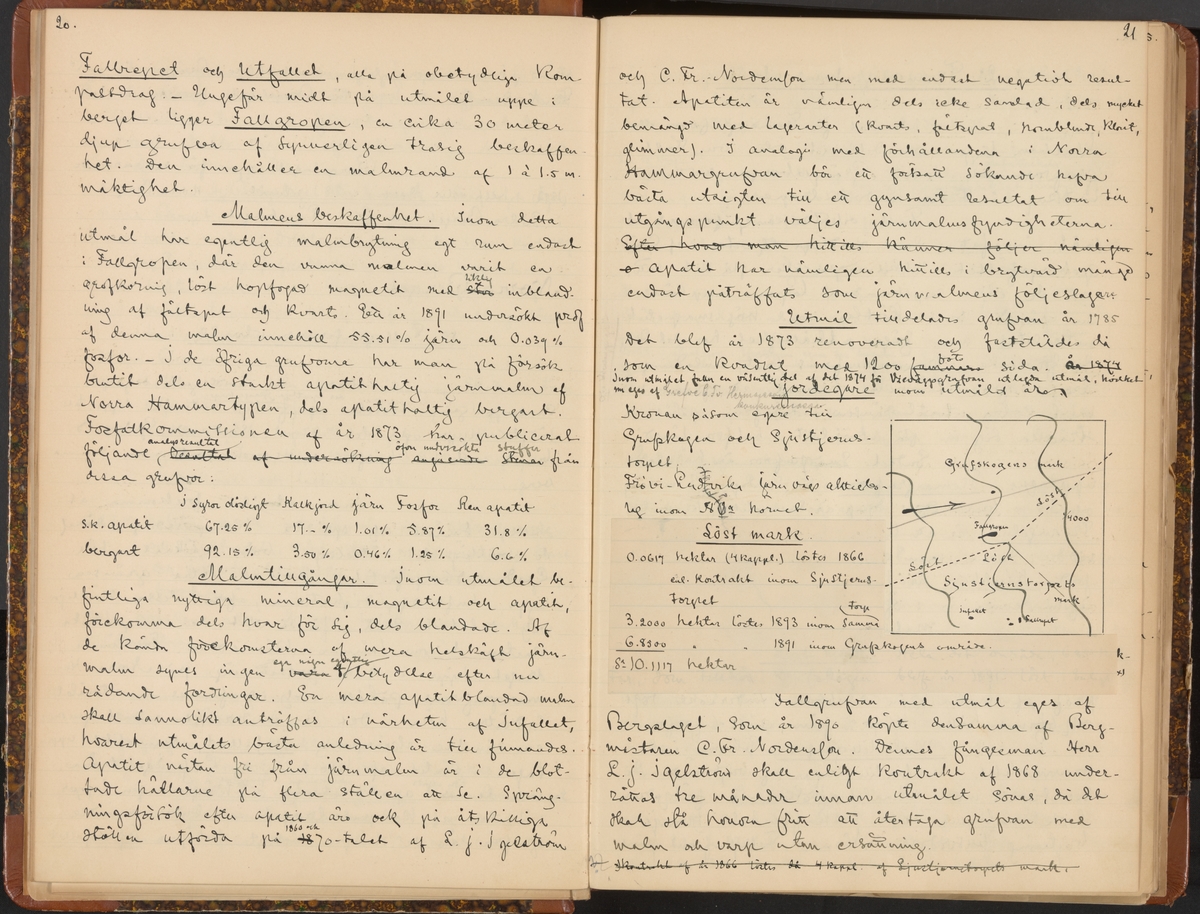 20.
Fallrepet och Utfallet, alla på obetydliga kom-
passdrag. – Ungefär midt på utmålet uppe i
berget ligger Fallgropen, en cirka 30 meter
djup grufva af synnerligen trasig beskaffen-
het. Den innehåller en malmrand af 1 à 1.5 m.
mäktighet.
Malmens beskaffenhet. Inom detta
utmål har egentlig malmbrytning egt rum endast
i Fallgropen, där den vunna malmen varit en
grofkornig, löst hopfogad magnetit med stor riklig inbland-
ning af fältspat och kvarts. Ett år 1891 undersökt prof
af denna malm innehöll 55.51 % järn och 0.039 %
fosfor. – I de öfriga grufvorna har man på försök
brutit dels en starkt apatithaltig järnmalm af
Norra Hammartypen, dels apatithaltig bergart.
Fosfatkommissionen af år 1873 har publicerat
följande resultat analysresultat af undersökning öfver undersökta stuffer från
dessa grufvor:
I syror olösligt Kalkjord järn Fosfor Ren apatit
s.k. apatit 67.25 % 17.– % 1.01 % 5.87 % 31.8 %
bergart 92.15 % 3.50 % 0.46 % 1.25 % 6.6 %
Malmtillgångar. Inom utmålet be-
fintliga nyttiga mineral, magnetit och apatit,
förekomma dels hvar för sig, dels blandade. Af
de kända förekomsterna af mera helskäft järn-
malm synes ingen vara ega någon egentlig betydelse efter nu
rådande fordringar. En mera apatitblandad malm
skall sannolikt anträffas i närheten af Infallet,
hvarest utmålets bästa anledning är till finnandes.
Apatit nästan fri från järnmalm är i de blot-
tade hällarne på flera ställen att se. Spräng-
ningsförsök efter apatit äro ock på åtskilliga
ställen utförda på 1860 och 1870-talet af L. J. Igelström
21
och C. Fr. Nordensson men med endast negativt resul-
tat. Apatiten är nämligen dels icke samlad, dels mycket
bemängd med lagerarter (kvarts, fältspat, hornblende, klorit,
glimmer). I analogi med förhållandena i Norra
Hammargrufvan bör ett fortsatt sökande hafva
bästa utsigten till ett gynsamt resultat om till
utgångspunkt väljes järnmalmsfyndigheterna.
Efter hvad man hittills känner följer nämligen
apatit har nämligen hittills i brytvärd mängd
endast påträffats som järnmalmens följeslagare.
Utmål tilldelades grufvan år 1785
Det blef år 1873 renoveradt och fastställdes då
som en kvadrat med 1200 famnars fots sida. År 1874
inom utmålet faller en väsentlig del af det 1874 för utlagda utmål, hvilket
m eges af Grefve C. Fr.
Jordegare inom utmålet äro
Kronan såsom egare till
Grufskogen och Sjustjerns-
torpet,
Frövi–Ludvika järnvägs aktiebo-
lag inom hörnet.
Grufskogens mark
Löst
4000
Fallgropen
Löst
Löst
Sjustjernstorpets
mark
Infallet
Löst mark.
0.0617 hektar (4 kappl.) löstes 1866
enl. kontrakt inom Sjustjerns-
torpet
3.2000 hektar löstes 1893 inom samma Torp
6.8300 " " 1891 inom Grufskogens område.
S:a 10.1117 hektar
Fallgrufvan med utmål eges af
Bergslaget, som år 1890 köpte densamma af Berg-
mästaren C. Fr. Nordensson. Dennes fångesman Herr
L. J. Igelström skall enligt kontrakt af 1868 under-
rättas tre månader innan utmålet sönas, då det
skall stå honom fritt att återtaga grufvan med
malm och varp utan ersättning.
Kontrakt af år 1866 löstes 4 kappl. af Sjustjernstorpets mark.